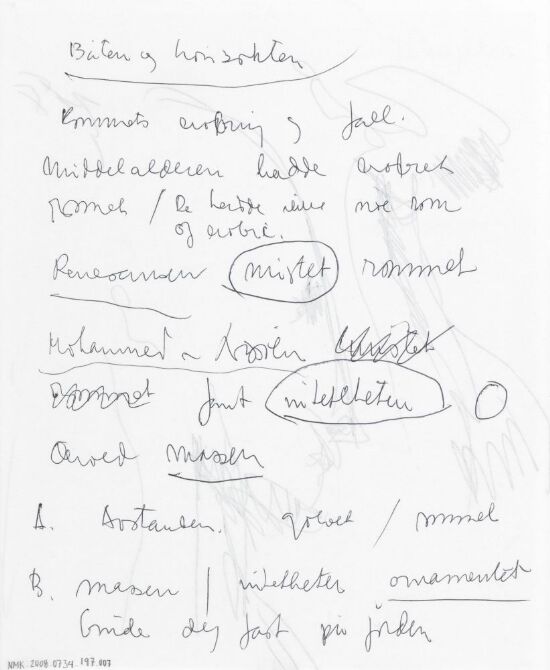 Båten og horisonten
Rommets erobring og fall.
Middelalderen hadde erobret
rommet / De hadde ikke noe rom
og erobre.
Renessansen mistet rommet
Mohammed mistet
rommet fant intetheten
Derved massen
A. Avstanden. golvet / rommet
B. massen / intetheten ornamentet
binde deg fast på jorden
NMK.2008.0734.197.007